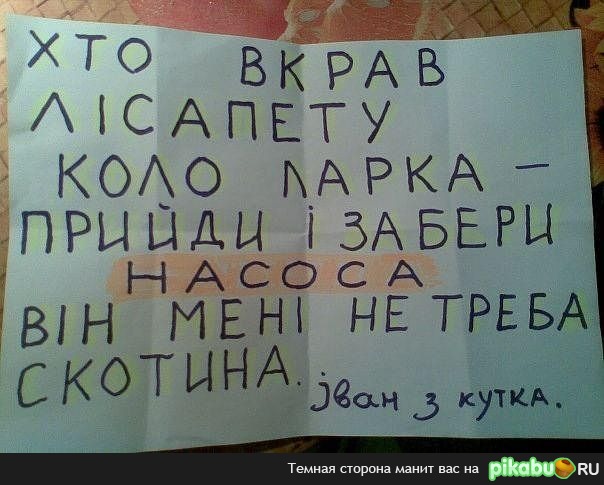 ХТО ВКРАВ
ЛІСАПЕТУ
КОЛО ПАРКА –
ПРИЙДИ І ЗАБЕРИ
НАСОСА
ВІН МЕНІ НЕ ТРЕБА
СКОТИНА.
Іван з кутка.
Темная сторона манит вас на pikabu.RU